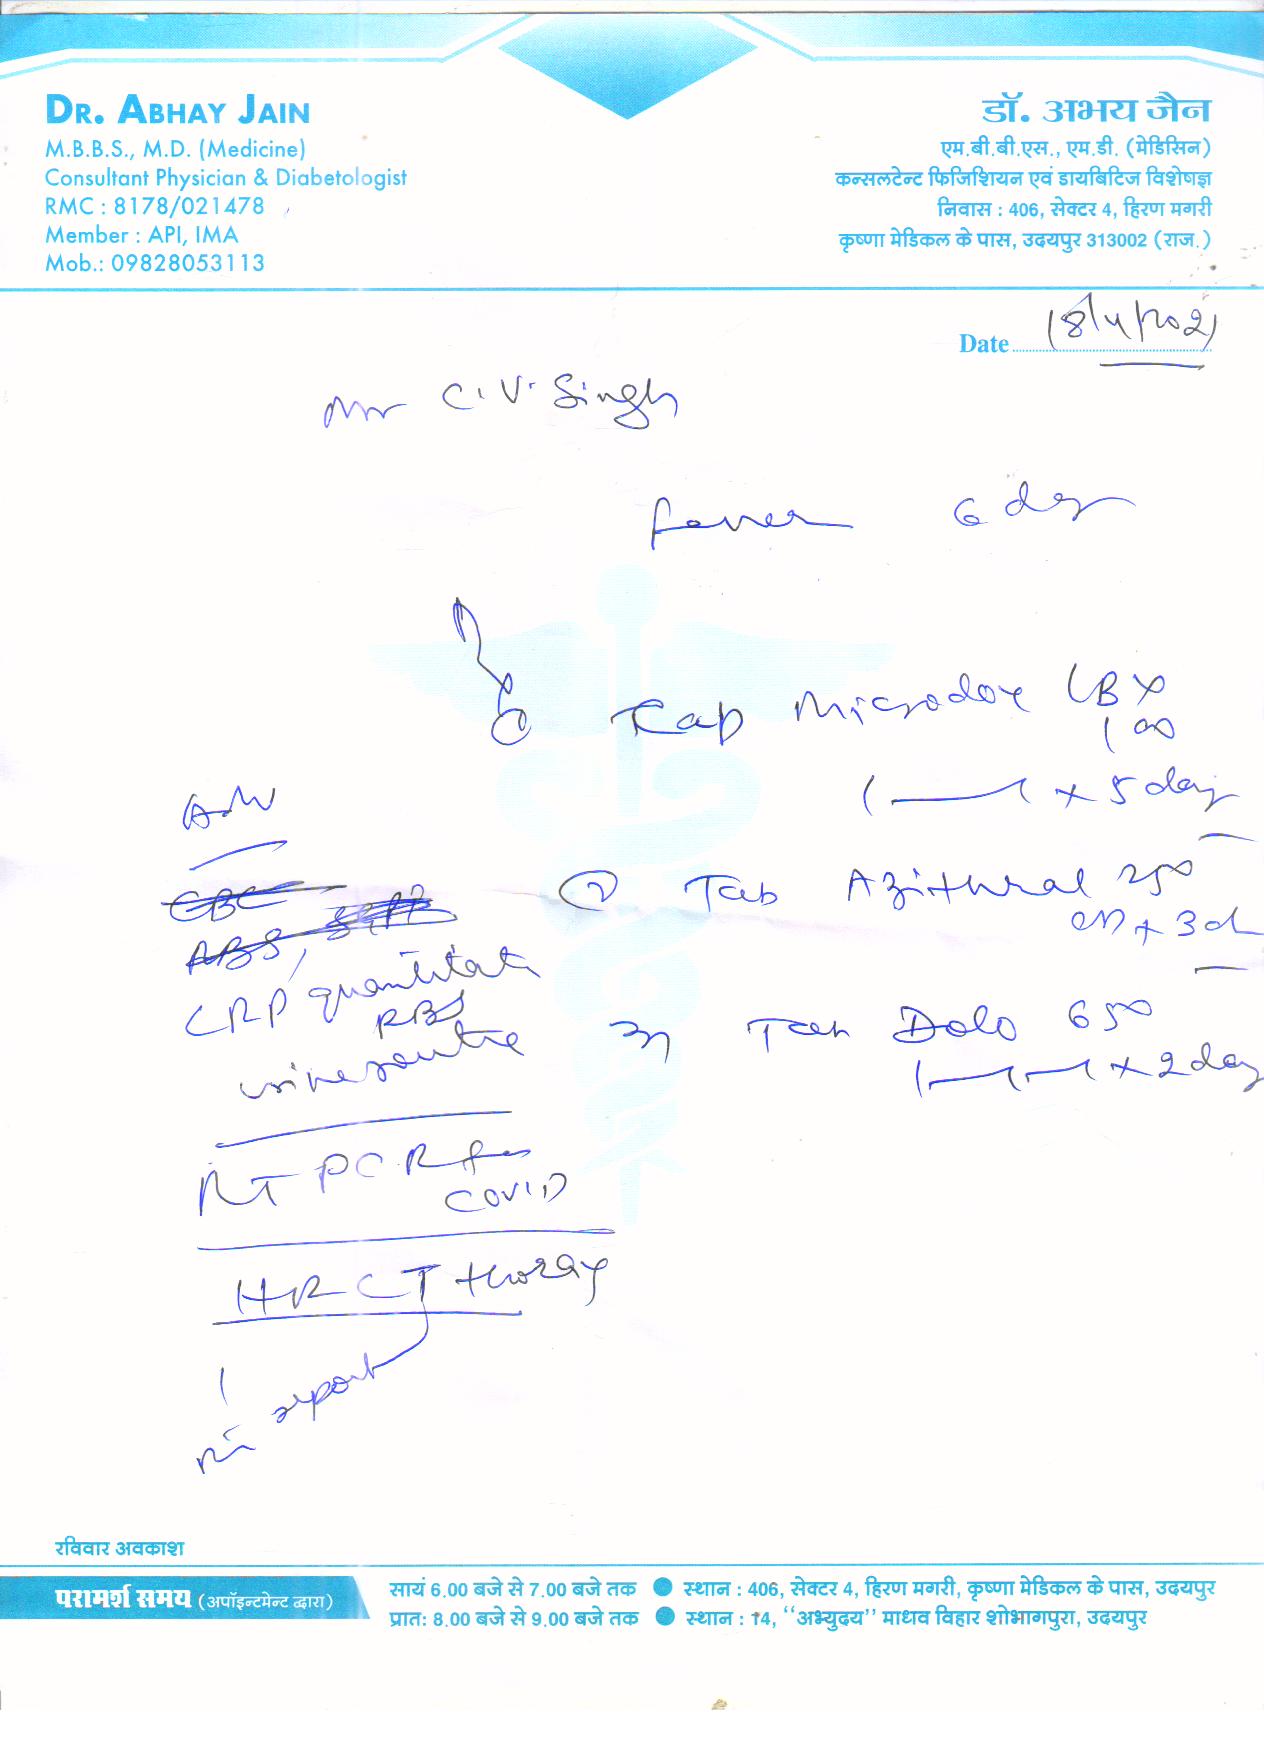 DR. ABHAY JAIN
M.B.B.S., M.D. (Medicine)
Consultant Physician & Diabetologist
RMC : 8178/021478
Member : API, IMA
Mob.: 09828053113
डॉ. अभय जैन
एम.बी.बी.एस., एम.डी. (मेडिसिन)
कन्सलटेन्ट फिजिशियन एवं डायबिटिज विशेषज्ञ
निवास : 406, सेक्टर 4, हिरण मगरी
कृष्णा मेडिकल के पास, उदयपुर 313002 (राज.)
Date 18/4/2021
Mr C.V. Singh
fever 6 day
Cap Microdox LBX
100
1 — 1 x 5 day
Adv
CBC
② Tab Azithral 250
x 3 d
CRP quantitati
RBS
urine routine
3) Tab Dolo 650
1—1—1 x 2 day
RT PCR for
COVID
HRCT thorax
report
रविवार अवकाश
परामर्श समय (अपॉइन्टमेन्ट द्वारा)
सायं 6.00 बजे से 7.00 बजे तक ● स्थान : 406, सेक्टर 4, हिरण मगरी, कृष्णा मेडिकल के पास, उदयपुर
प्रातः 8.00 बजे से 9.00 बजे तक ● स्थान : 14, "अभ्युदय" माधव विहार शोभागपुरा, उदयपुर